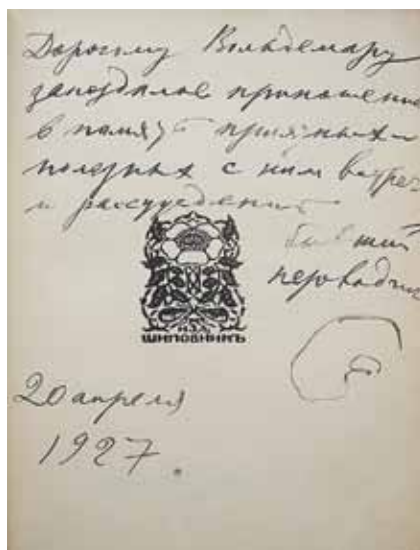 Дорогому Вольдемару
запоздалое приношение
в память приятных и
полезных с ним встреч
и рассуждений
бывший
переводчик
ИЗД.
ШИПОВНИКЪ
20 апреля
1927.